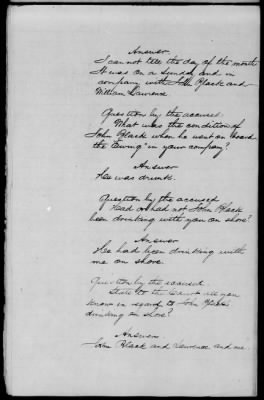 Answer
I can not tell the day of the month
It was on a Sunday and in
company with John Black and
William Lawrence
Question by the accused
What was the condition of
John Black when he went on board
the "Ewing" in your company?
Answer
He was drunk.
Question by the accused
Had or had not John Black
been drinking with you on shore?
Answer
He had been drinking with
me on shore.
Question by the accused
State to the Court all you
know in regard to John Black
drinking on shore?
Answer
John Black and Lawrence and me